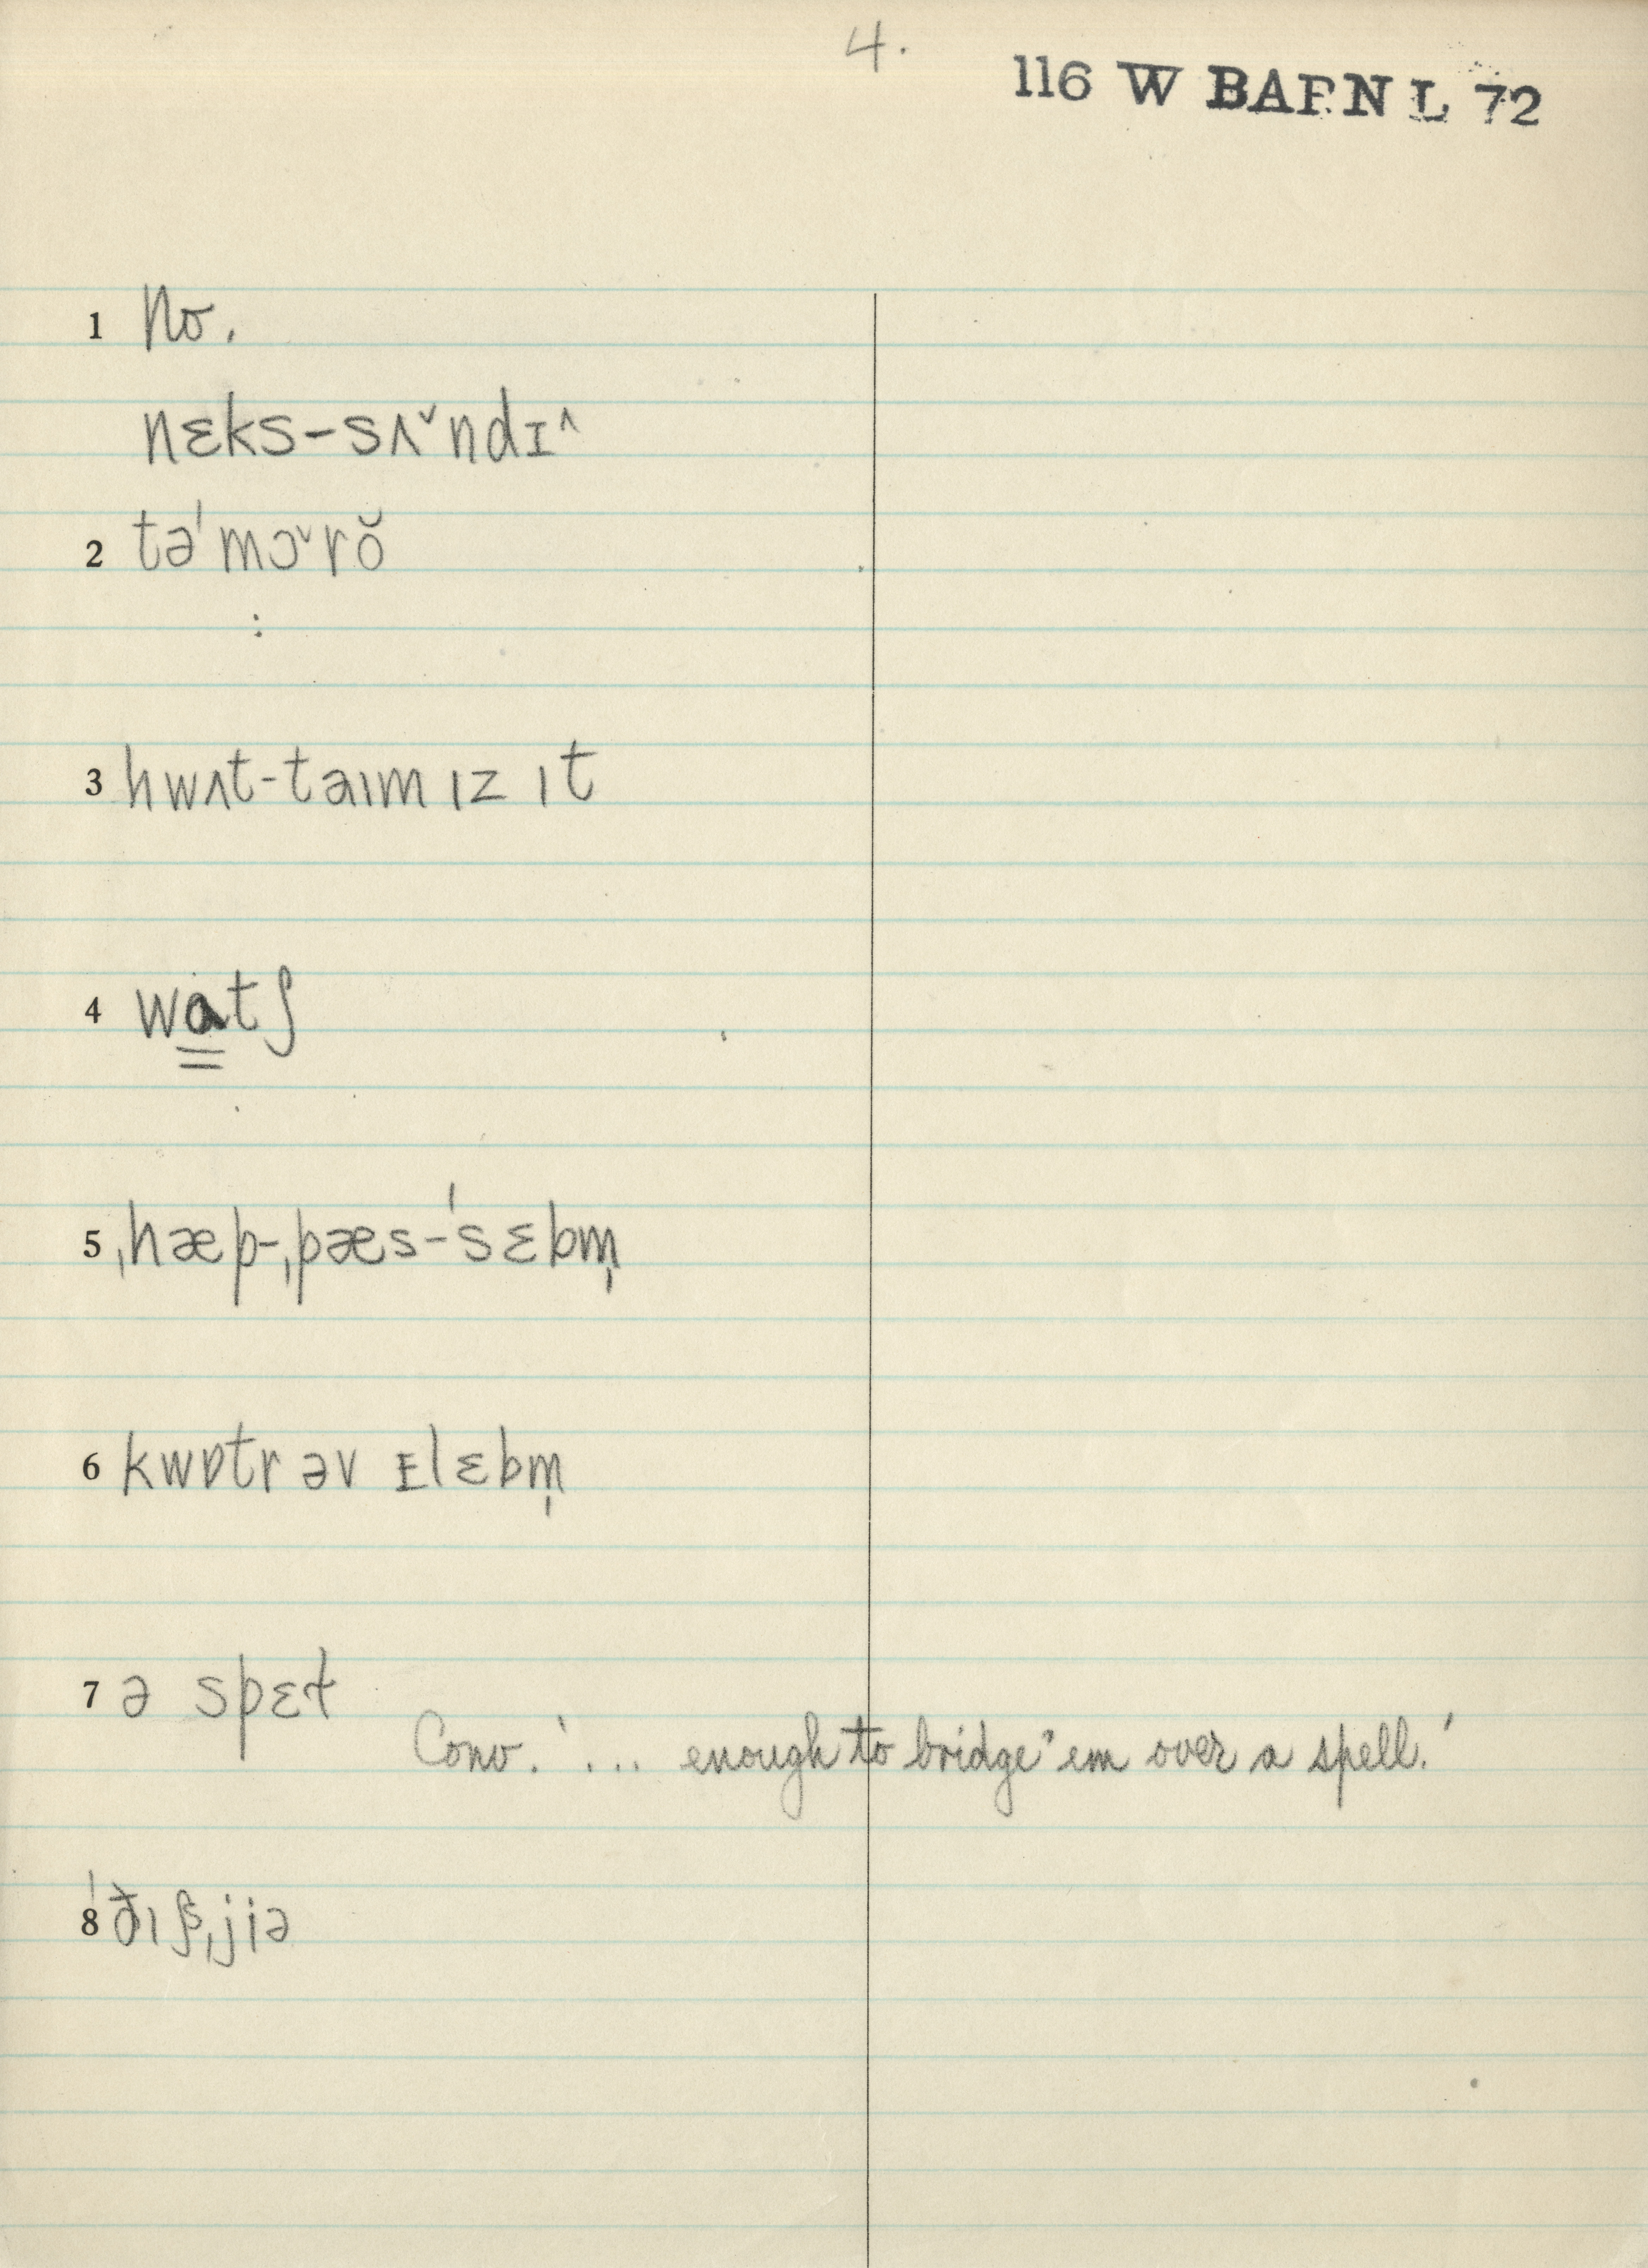 4.
116 W BARN L 72
1 No.
nɛks-sʌ˅ndɪ˄
2 tə'mɔ˅rŏ
3 hwʌt-taɪm ɪz ɪt
4 watʃ
5 ˌhæp-ˌpæs-ˈsɛbm̩
6 kwɒtr əv ɪlɛbm̩
7 ə spɛɫ
Conv. '... enough to bridge 'em over a spell.'
8 ˈðɪʃˌjiə